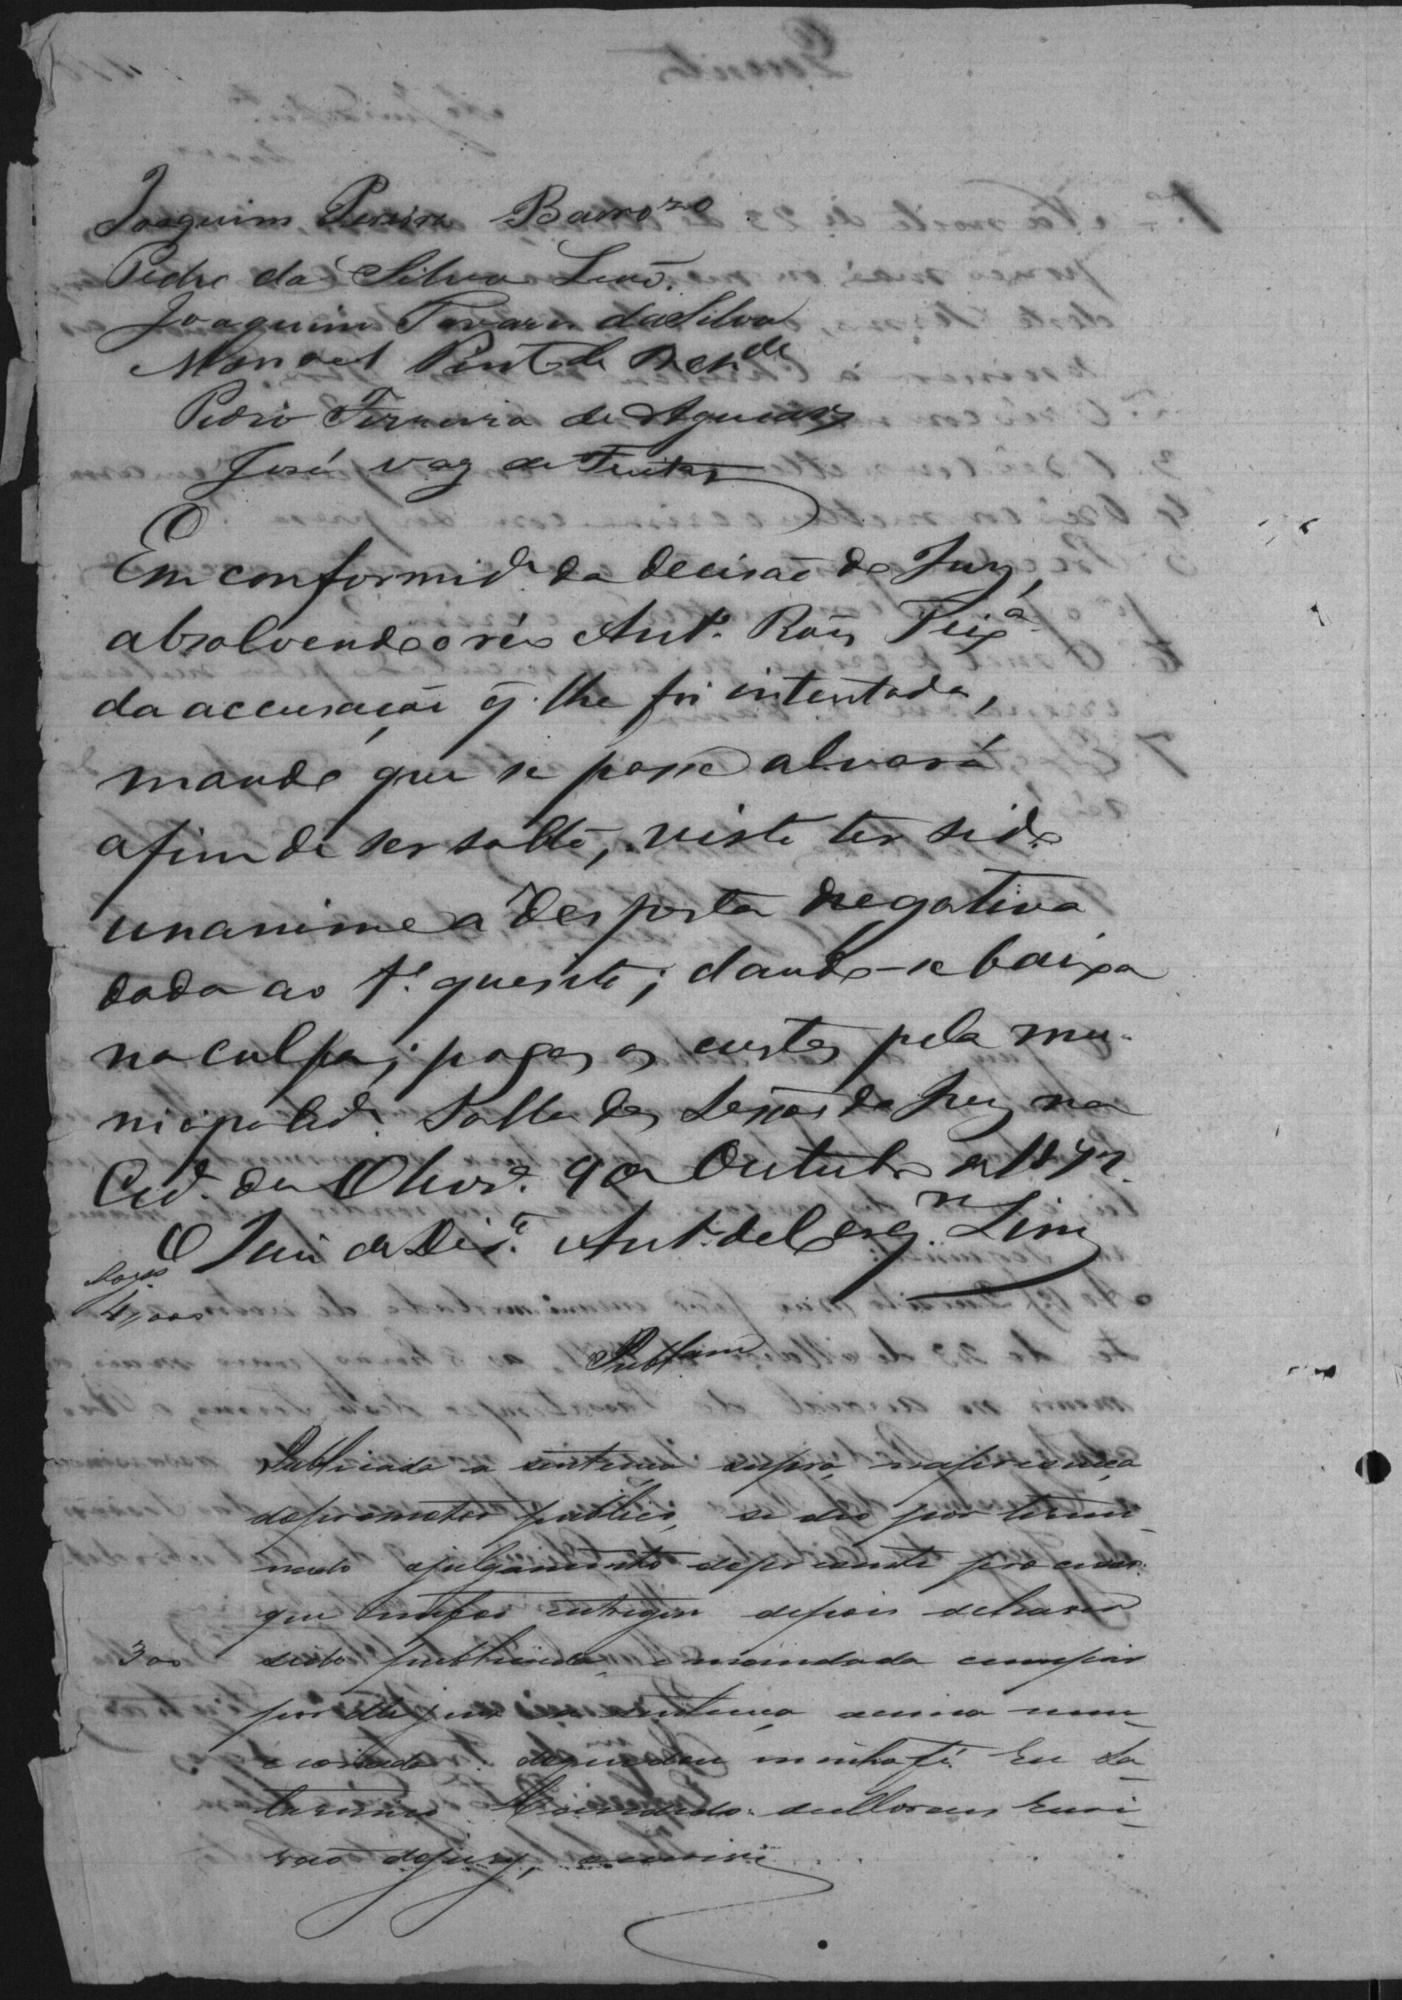 Joaquim Pereira Barrozo
Pedro da Silva Leaõ.
Joaquim Tavares da Silva
Manoel Pinto de Resde
Pedro Ferreira de Aguiar
José Vaz de Freitas
Em conformide da decisaõ do Jury,
absolvendo o réo Anto. Roiz Teixa.
da accusaçaõ q. lhe foi intentada,
mando que se passe alvará
afim de ser solto, visto ter sido
unanime a resposta negativa
dada ao 1º quesito; dando-se baixa
na culpa; pagas as custas pela mu-
nicipalide. Salla das Sessões do Jury na
Cide. da Olivra. 9 de Outubro de 18
O Juiz de Dirto. Anto. de Cerqra. Lima
4,000
Publcam
Publicada a sentença supra na presença
do promotor publico, se deo por termi-
nado o julgamento do presente processo
que me foi entregue depois de haver
300 sido publicada e mandada cumprir
por elle juiz a sentença acima men-
cionada: do que dou minha fé. Eu
de Moraes Escri-
vaõ do jury, o escrevi